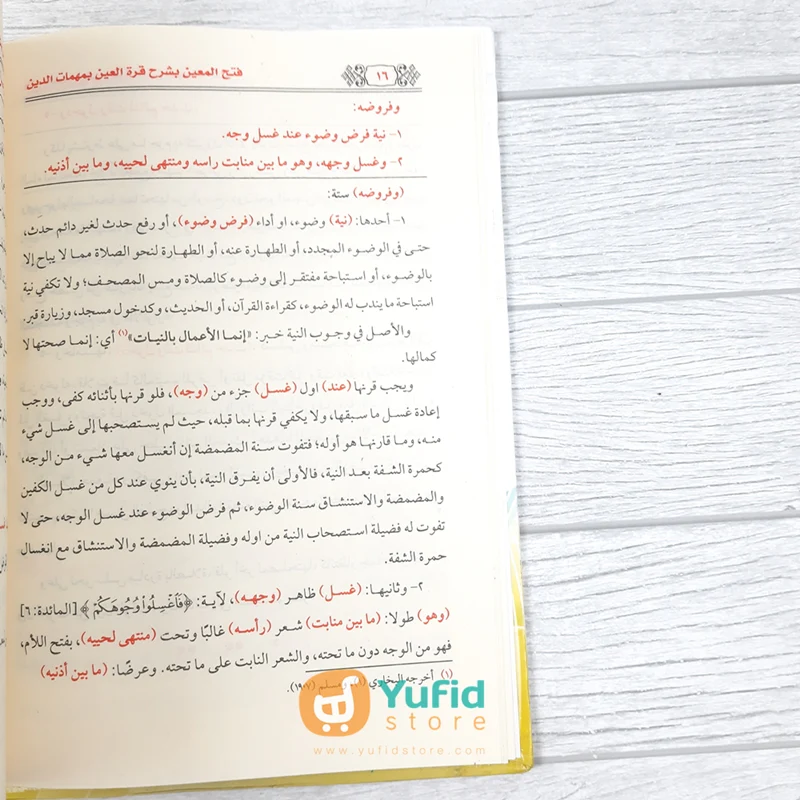 ١٦
فتح المعين بشرح قرة العين بمهمات الدين
وفروضه:
١- نية فرض وضوء عند غسل وجه.
٢- وغسل وجهه، وهو ما بين منابت راسه ومنتهى لحييه، وما بين أذنيه.
(وفروضه) ستة:
١- أحدها: (نية) وضوء، او أداء (فرض وضوء)، أو رفع حدث لغير دائم حدث،
حتى في الوضوء المجدد، أو الطهارة عنه، أو الطهارة لنحو الصلاة مما لا يباح إلا
بالوضوء، أو استباحة مفتقر إلى وضوء كالصلاة ومس المصحف؛ ولا تكفي نية
استباحة ما يندب له الوضوء، كقراءة القرآن، أو الحديث، وكدخول مسجد، وزيارة قبر.
والأصل في وجوب النية خبر: «إنما الأعمال بالنيات»(١) أي: إنما صحتها لا
كمالها.
ويجب قرنها (عند) اول (غسل) جزء من (وجه)، فلو قرنها بأثنائه كفى، ووجب
إعادة غسل ما سبقها، ولا يكفي قرنها بما قبله، حيث لم يستصحبها إلى غسل شيء
منه، وما قارنها هو أوله؛ فتفوت سنة المضمضة إن أنغسل معها شيء من الوجه،
كحمرة الشفة بعد النية، فالأولى أن يفرق النية، بأن ينوي عند كل من غسل الكفين
والمضمضة والاستنشاق سنة الوضوء، ثم فرض الوضوء عند غسل الوجه، حتى لا
تفوت له فضيلة استصحاب النية من اوله وفضيلة المضمضة والاستنشاق مع انغسال
حمرة الشفة.
٢- وثانيها: (غسل) ظاهر (وجهه)، لآية: ﴿فَاغْسِلُوا وُجُوهَكُمْ﴾ [المائدة: ٦]
(وهو) طولا: (ما بين منابت) شعر (رأسه) غالبًا وتحت (منتهى لحييه)، بفتح اللأم،
فهو من الوجه دون ما تحته، والشعر النابت على ما تحته. وعرضًا: (ما بين أذنيه)
(١) أخرجه البخاري (١)، ومسلم (١٩٠٧).
Yufid
store
www.yufidstore.com